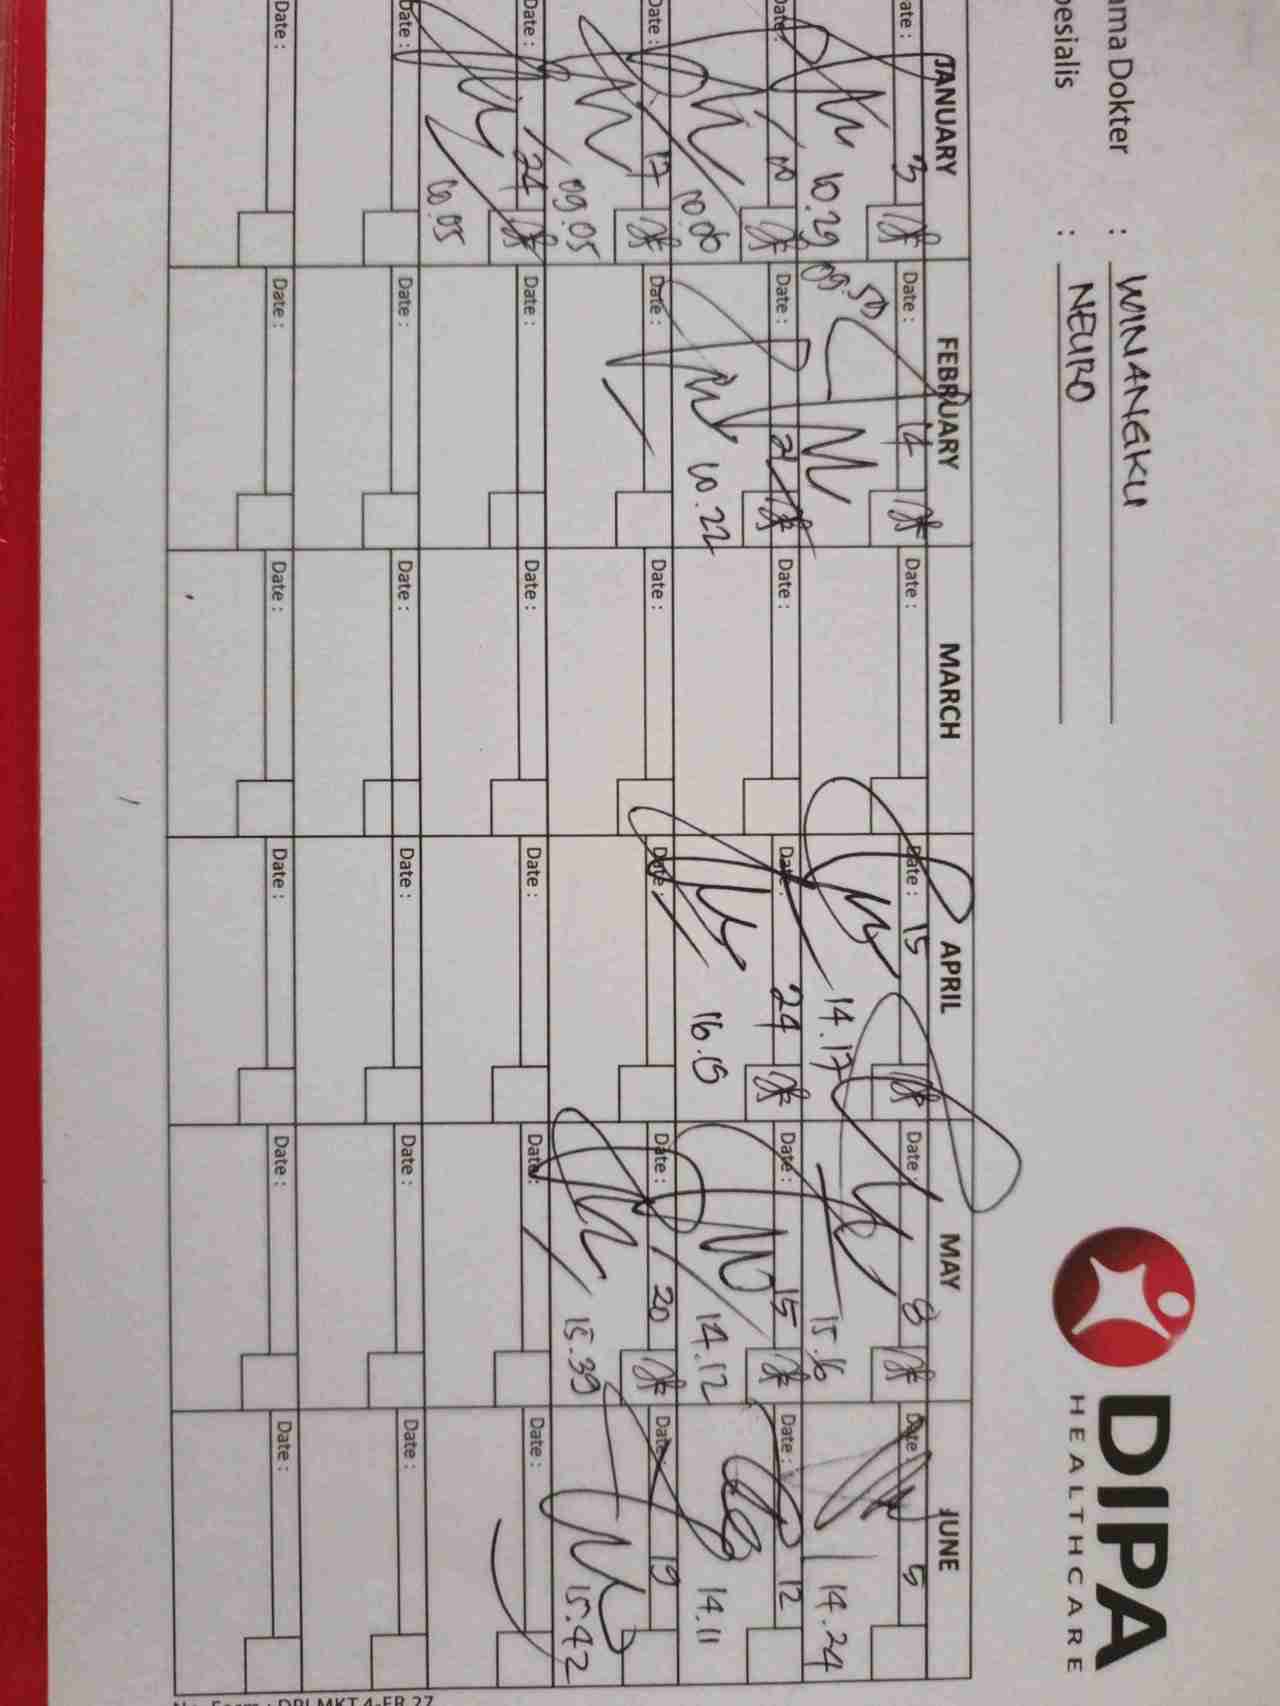 ma Dokter : WINANGKU
esialis : NEURO
DIPA
HEALTHCARE
JANUARY FEBRUARY MARCH APRIL MAY JUNE
ate : 3 Date : 14 Date : Date : 15 Date : 8 Date : 5
10.29 09.50 14.17 15.16 14.24
Date : Date : 21 Date : Date : 24 Date : 15 Date : 12
10.00 10.22 16.15 14.12 14.11
Date : 17 Date : Date : Date : Date : 20 Date : 19
09.05 15.39 15.42
Date : 24 Date : Date : Date : Date : Date :
Date : Date : Date : Date : Date : Date :
Date : Date : Date : Date : Date : Date :
No. Form : DPI.MKT.4-FR.27